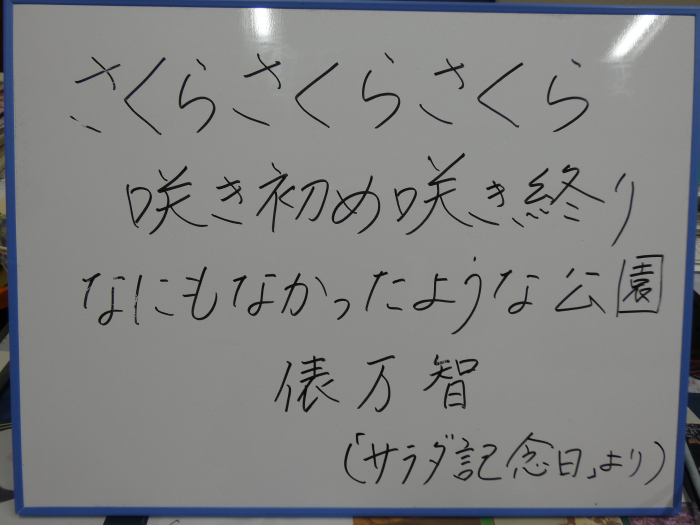 さくらさくらさくら
咲き初め咲き終り
なにもなかったような公園
俵万智
(「サラダ記念日」より)